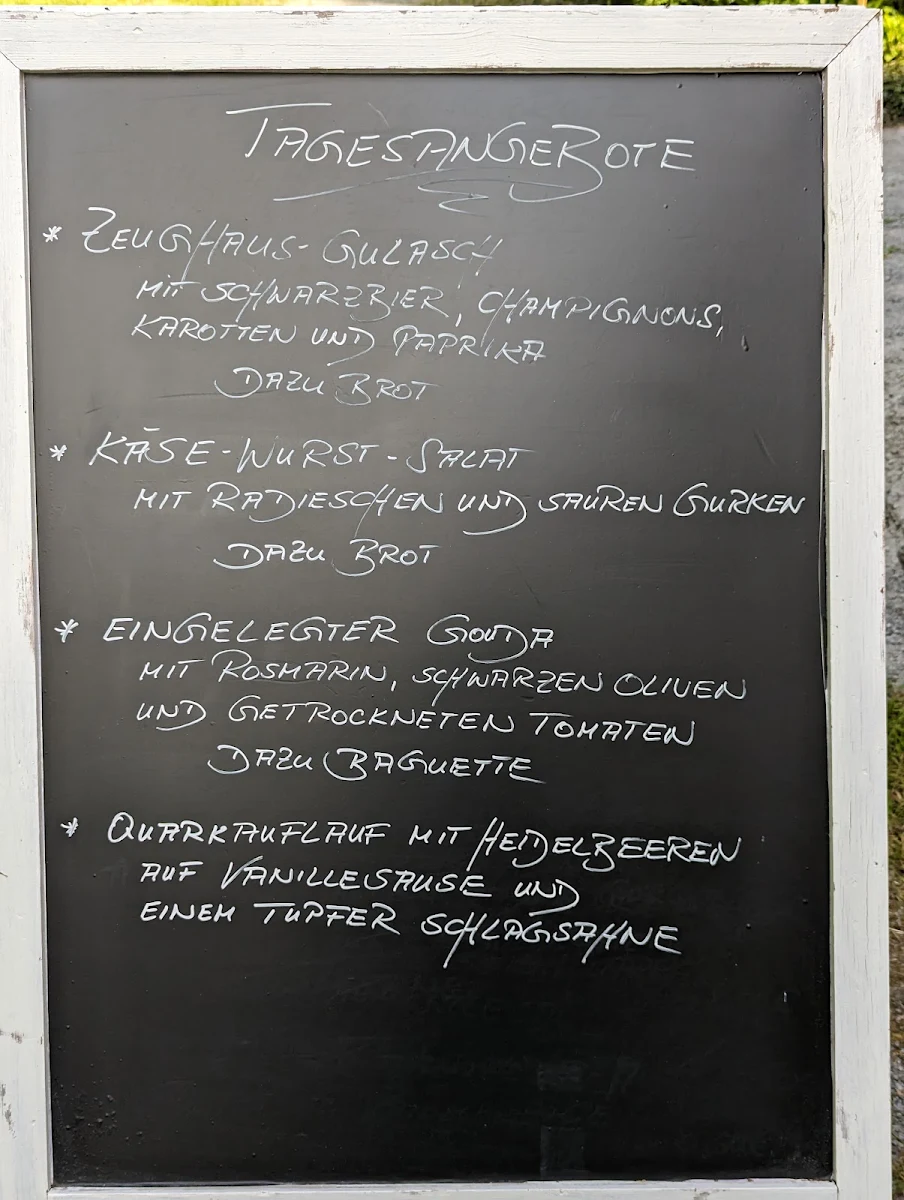 TAGESANGEBOTE
* ZEUGHAUS-GULASCH
MIT SCHWARZBIER, CHAMPIGNONS,
KAROTTEN UND PAPRIKA
DAZU BROT
* KÄSE-WURST-SALAT
MIT RADIESCHEN UND SAUREN GURKEN
DAZU BROT
* EINGELEGTER GOUDA
MIT ROSMARIN, SCHWARZEN OLIVEN
UND GETROCKNETEN TOMATEN
DAZU BAGUETTE
* QUARKAUFLAUF MIT HEIDELBEEREN
AUF VANILLESAUSE UND
EINEM TUPFER SCHLAGSAHNE